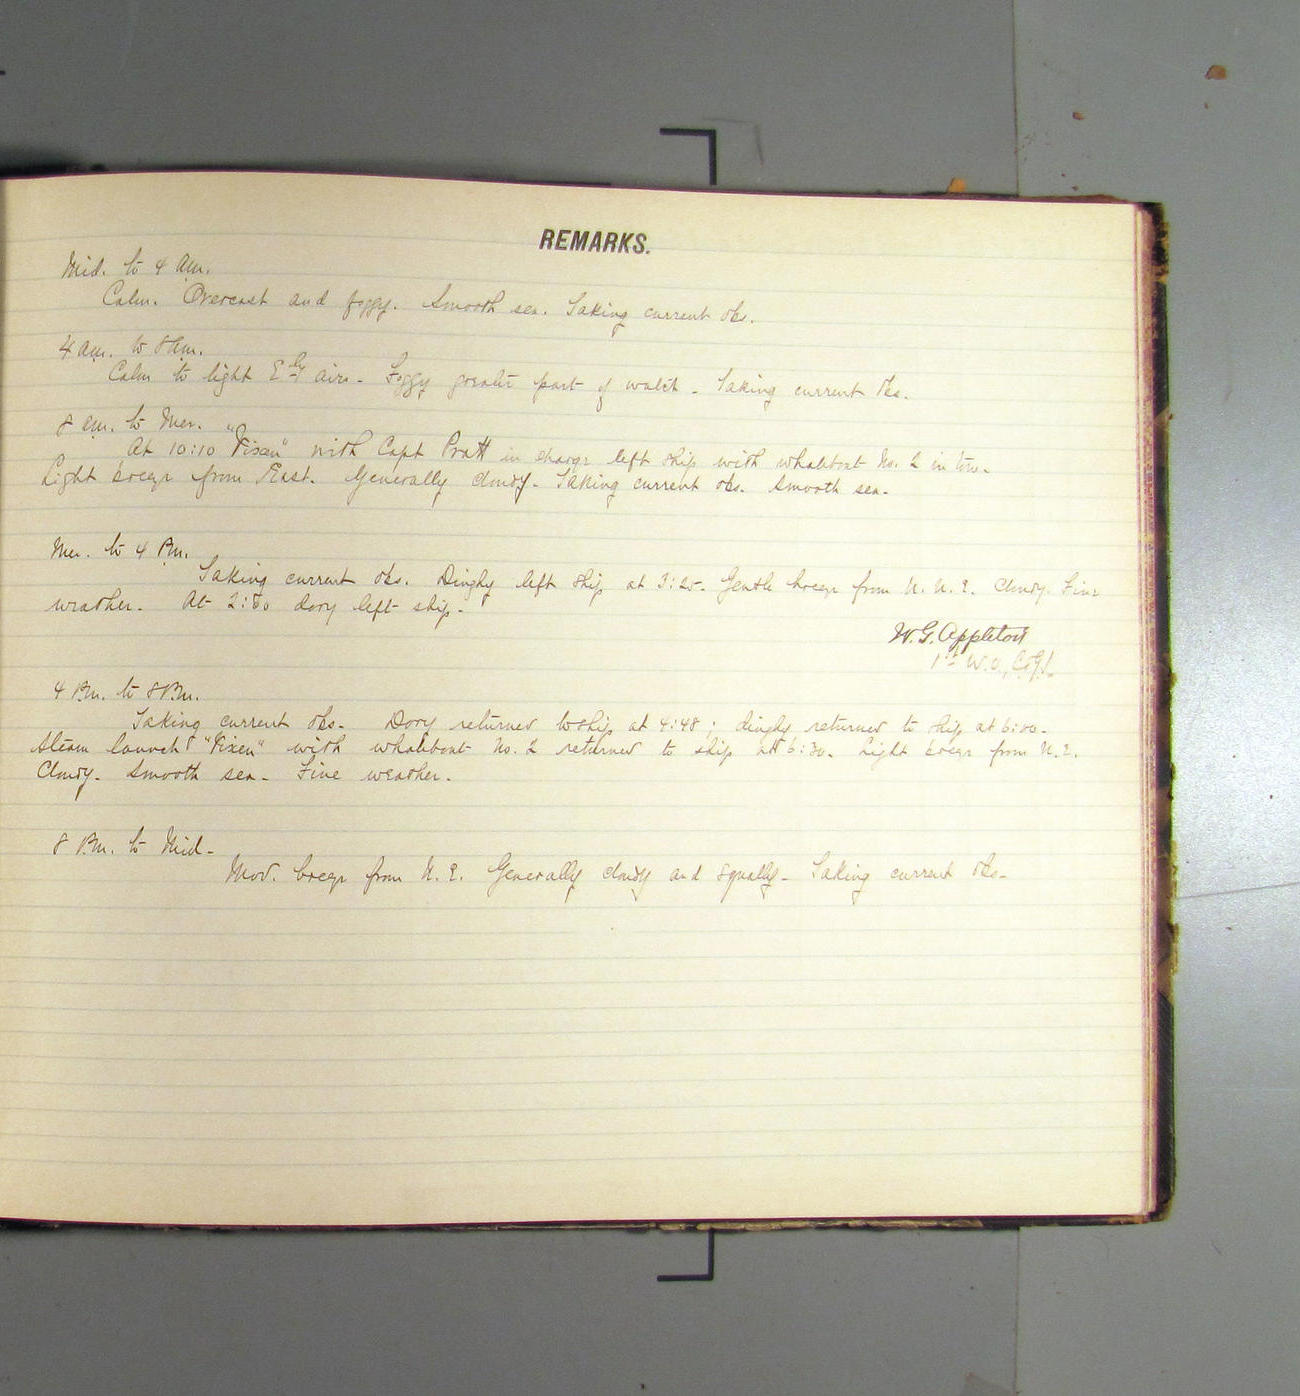 REMARKS.
Mid. to 4 am.
Calm. Overcast and foggy. Smooth sea. Taking current obs.
4 am. to 8 am.
Calm to light E'ly airs. Foggy greater part of watch. Taking current obs.
8 am. to Mer.
At 10:10 "Vixen" with Capt Pratt in charge left ship with whaleboat No. 2 in tow.
Light breeze from East. Generally cloudy. Taking current obs. Smooth sea.
Mer. to 4 Pm.
Taking current obs. Dinghy left ship at Gentle breeze from N. N. E. Cloudy. Fine
weather. At dory left ship.
W. G. Appleton
1st W.O.,
4 Pm. to 8 Pm.
Taking current obs. Dory returned to ship at 4:48; dinghy returned to ship at 6:00.
Steam launch "Vixen" with whaleboat No. 2 returned to ship at 6:30. Light breeze from N. E.
Cloudy. Smooth sea. Fine weather.
8 Pm. to Mid.
Mod. breeze from N. E. Generally cloudy and squally. Taking current obs.